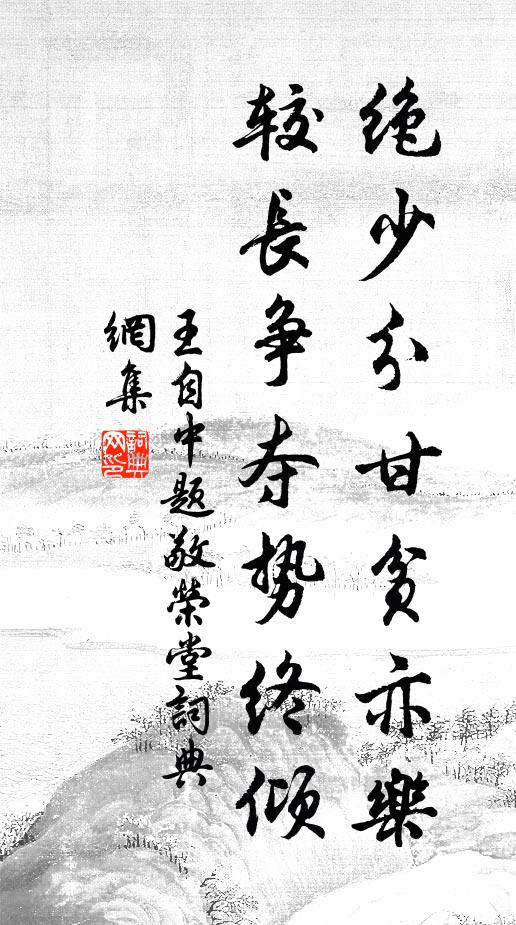 绝少分甘贫亦樂
较長争夺势终倾
王自中题敬榮堂詞典
網集
詞典
网印